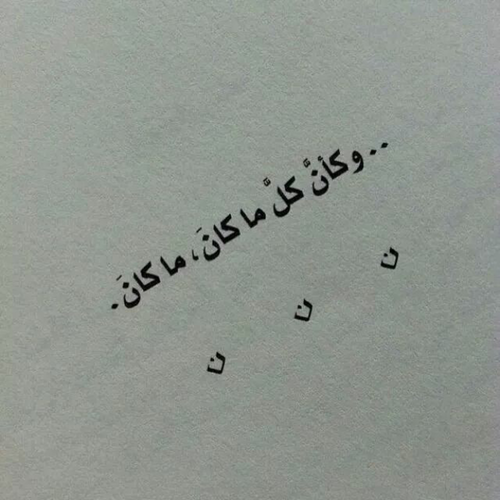 .. وكأنَّ كلَّ ما كانَ، ما كانَ.
ن
ن
ن